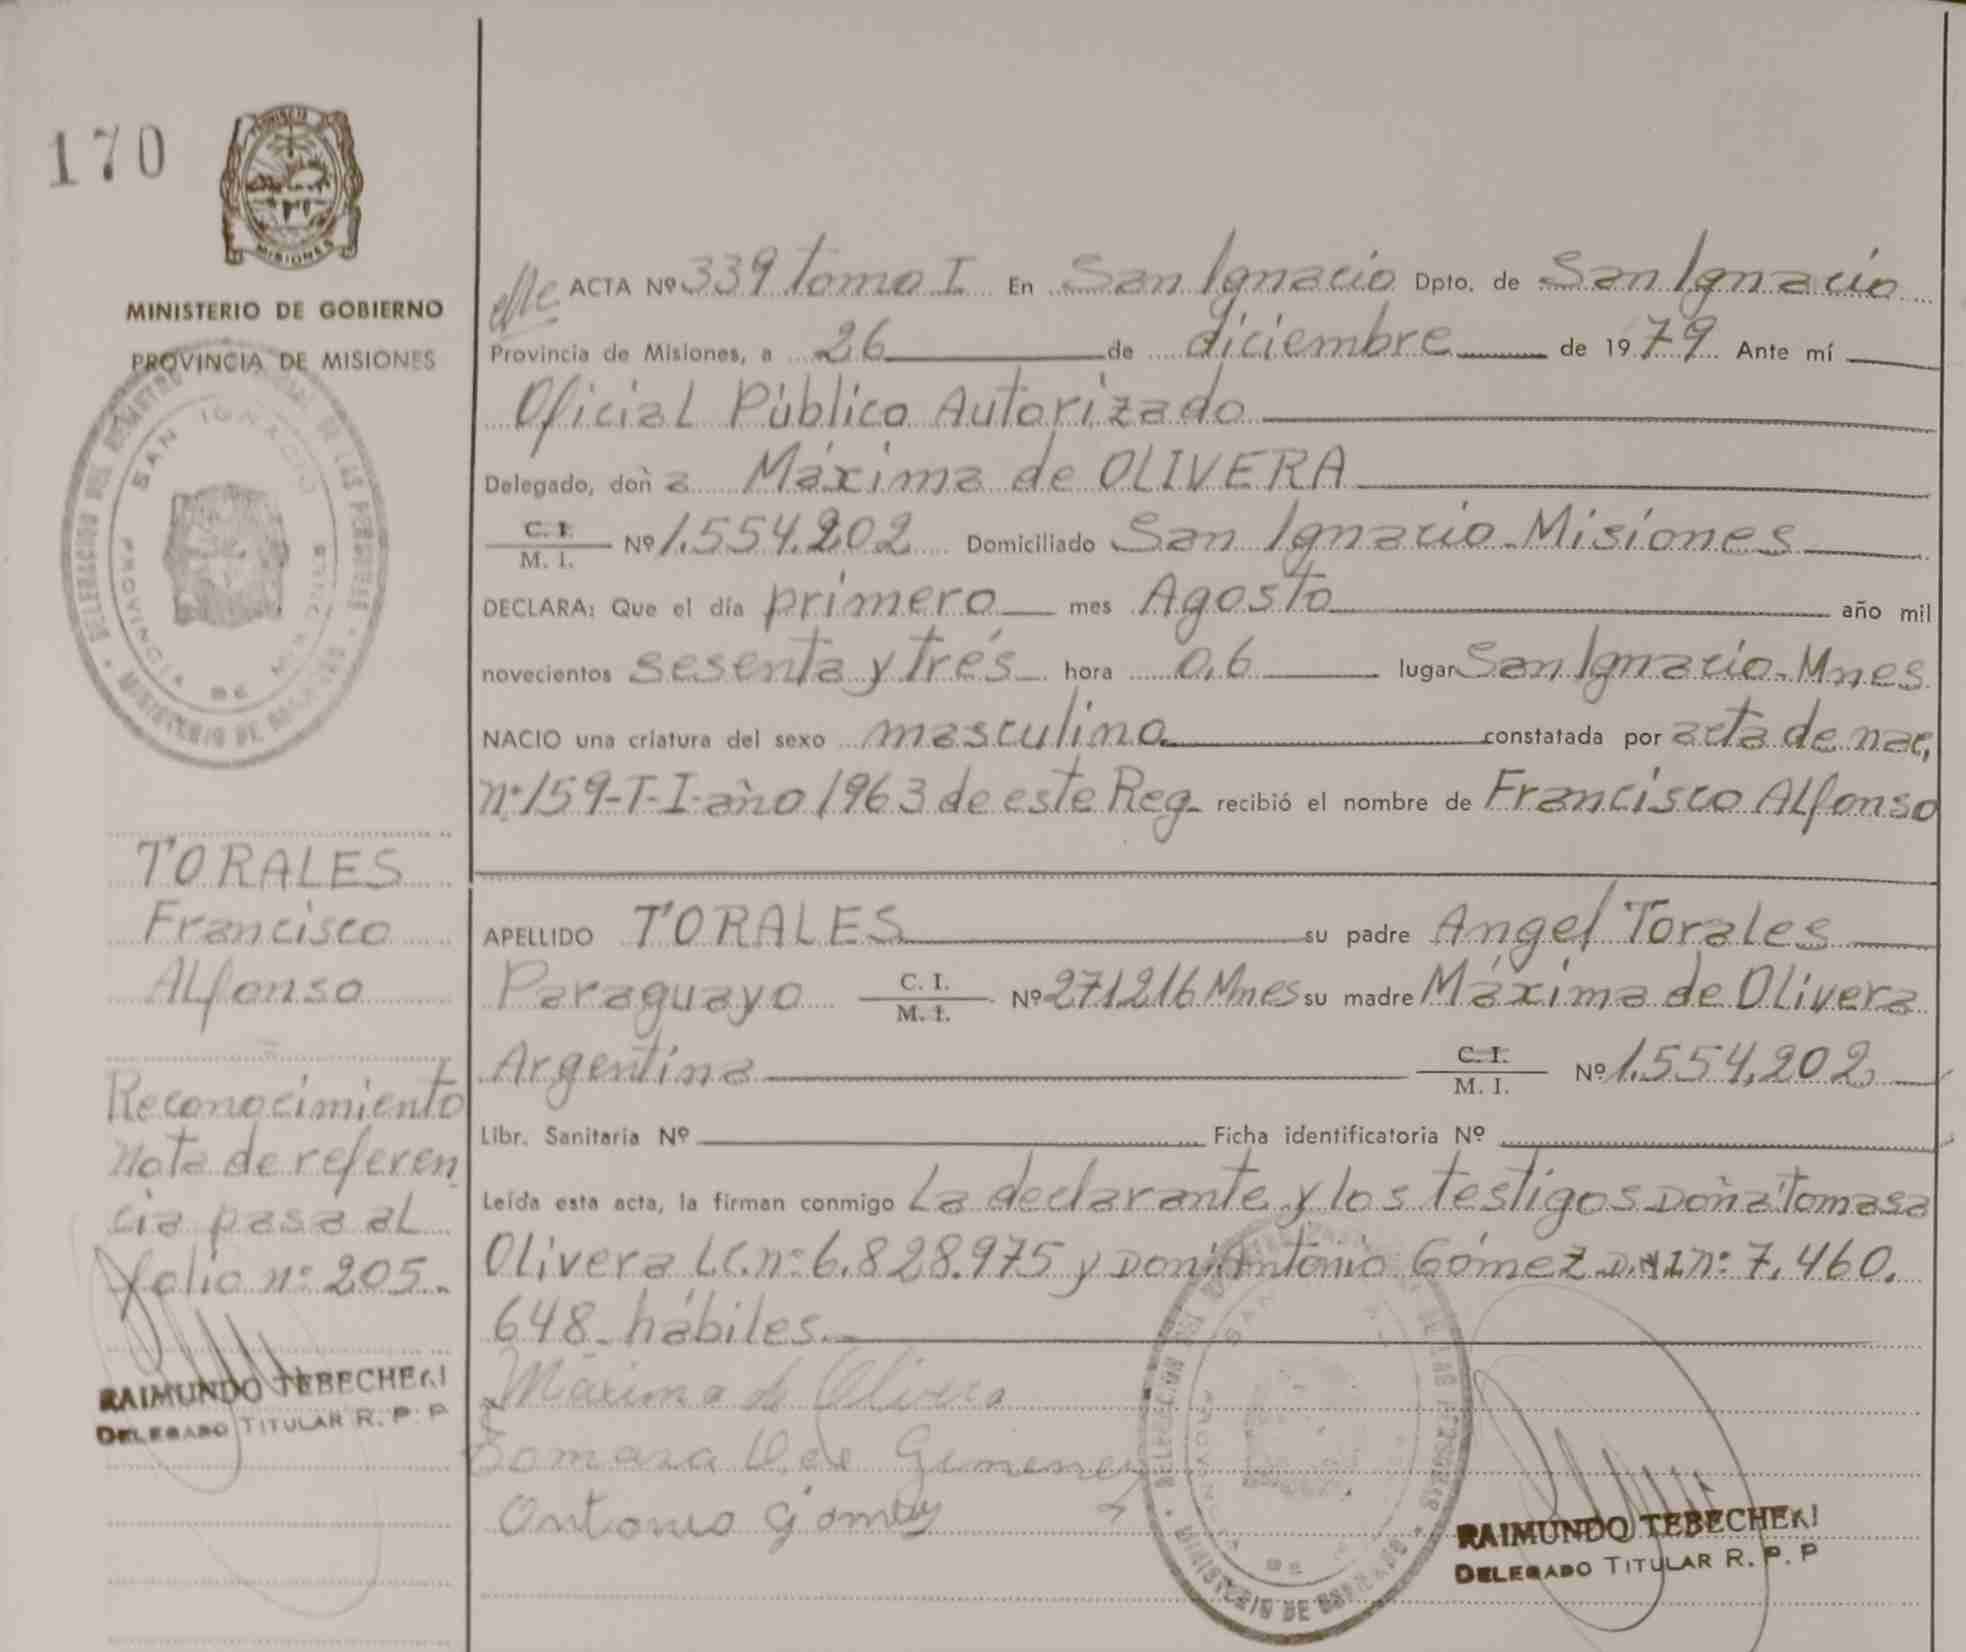 170
MISIONES
MINISTERIO DE GOBIERNO
PROVINCIA DE MISIONES
SAN IGNACIO
PROVINCIA DE MISIONES
TORALES
Francisco
Alfonso
Reconocimiento
Nota de referen
cia pasa al
folio nº 205.
RAIMUNDO TEBECHERI
DELEGADO TITULAR R. P. P
ACTA Nº 339 tomo I En San Ignacio Dpto. de San Ignacio
Provincia de Misiones, a 26 de diciembre de 1979 Ante mí
Oficial Público Autorizado
Delegado, doña Máxima de OLIVERA
C. I. / M. I. Nº 1.554.202 Domiciliado San Ignacio-Misiones
DECLARA: Que el día primero mes Agosto año mil
novecientos sesenta y trés hora 0,6 lugar San Ignacio-Mnes.
NACIO una criatura del sexo masculino constatada por acta de nac,
nº 159-T-I-año 1963 de este Reg- recibió el nombre de Francisco Alfonso
APELLIDO TORALES su padre Angel Torales
Paraguayo C. I. / M. I. Nº 271.216 Mnes su madre Máxima de Olivera
Argentina C. I. / M. I. Nº 1.554,202
Libr. Sanitaria Nº Ficha identificatoria Nº
Leída esta acta, la firman conmigo La declarante y los testigos Doña Tomasa
Olivera LC. nº 6.828.975 y Don Antonio Gómez D.N.I nº 7.460.
648- hábiles.
Máxima de Olivera
Tomasa O. de Gimenez
Antonio Gómez
RAIMUNDO TEBECHERI
DELEGADO TITULAR R. P. P